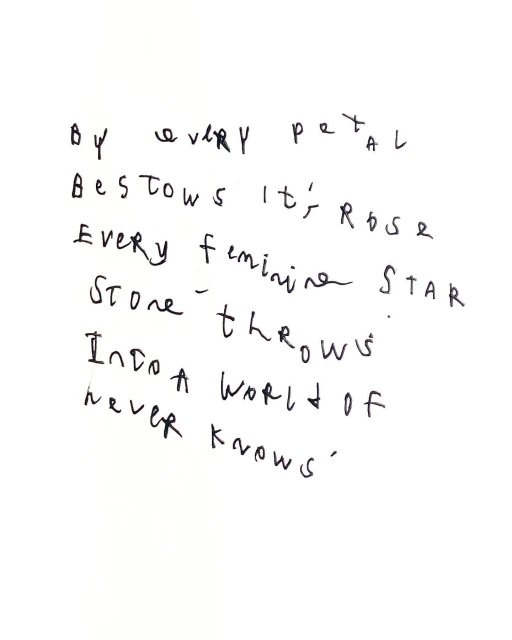 By every petal
Bestows it's Rose
Every feminine STAR
Stone-throws
Into A World of
never knows